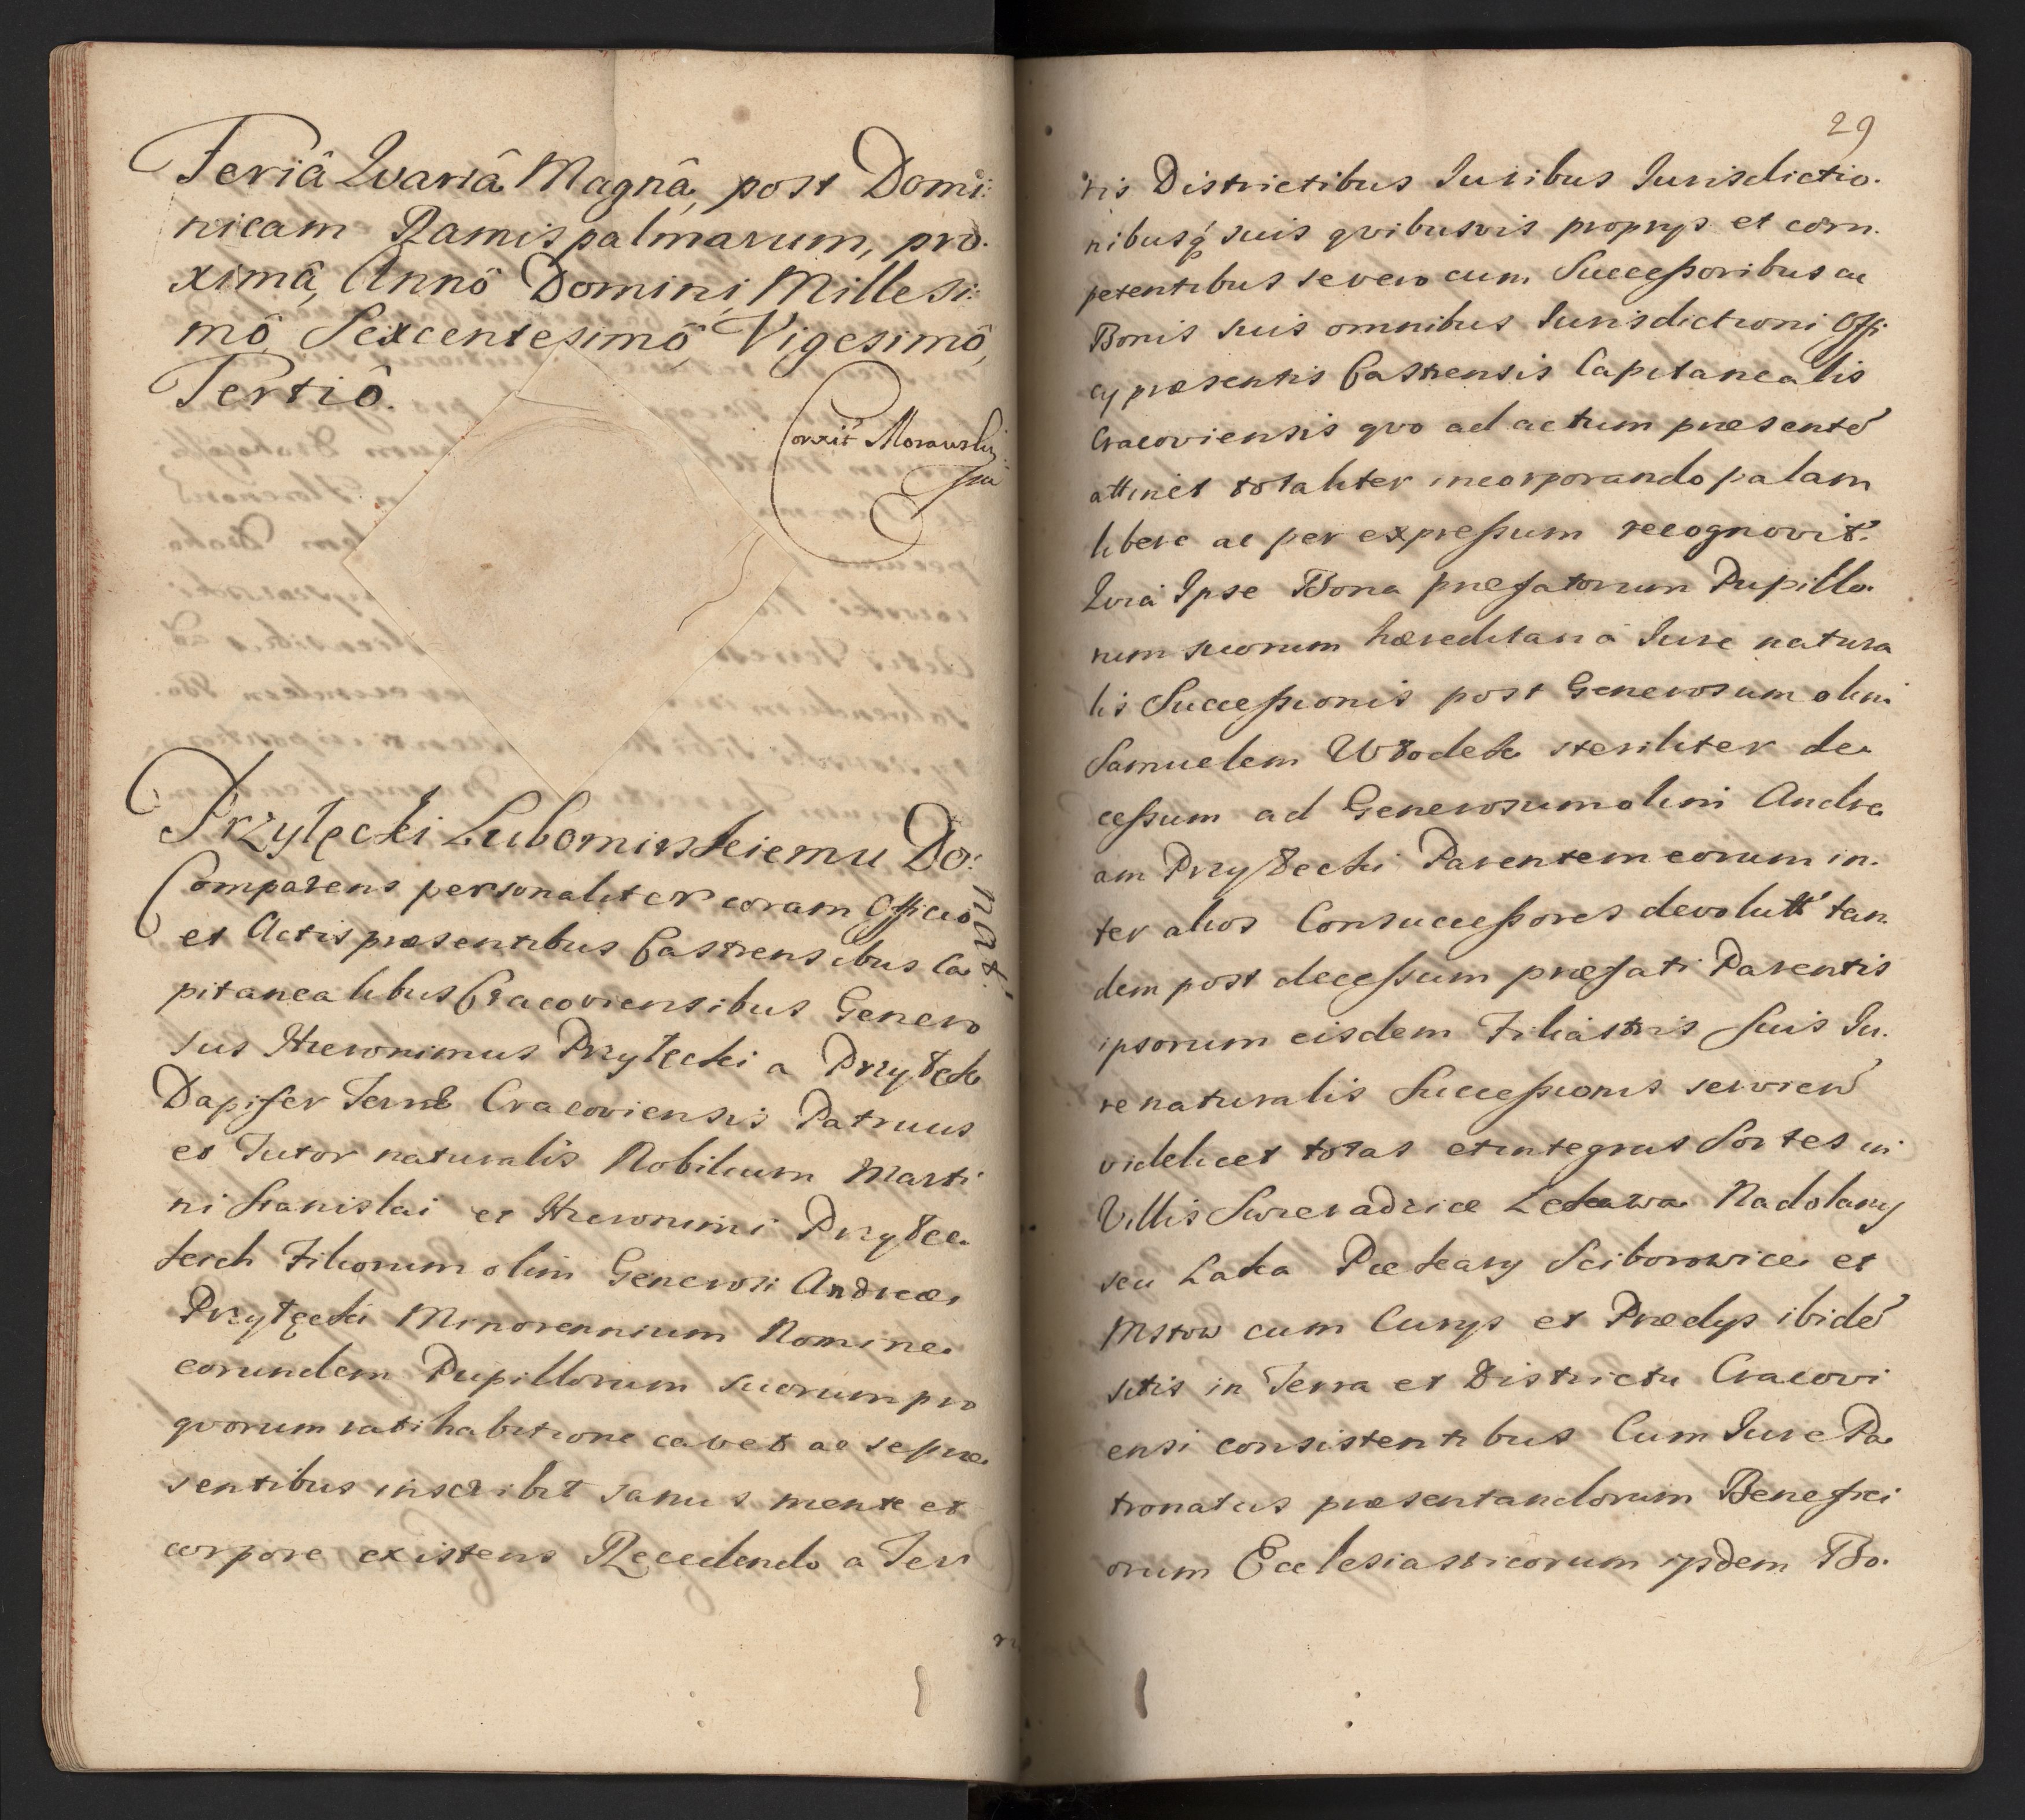 Feriâ Qvartâ Magnâ, post Domi:
nicam Ramispalmarum, pro.
ximâ, Annô Domini, Millesi:
mô, Sexcentesimô, Vigesimô,
Tertiô.
Corrit Morawsky
Przyłęcki Lubomirskiemu Do:
nat:
Comparens personaliter coram Officio
et Actis præsentibus Castrensibus Ca
pitanealibus Cracoviensibus Genero
sus Hieronimus Przyłęcki a Przyłęk
Dapifer Terræ Cracoviensis Patruus
et Tutor naturalis Nobilium Marti
ni Stanislai et Hieronimi Przyłec.
kich Filiorum olim Generosi Andreæ
Przyłęcki Minorennium Nomine
eorundem Pupillorum suorum pro
qvorum ratihabitione cavet ac se præ
sentibus inscribit sanus mente et
corpore existens Recedendo a Ter
29
ris Districtibus Iuribus Iurisdictio.
nibusq; suis qvibusvis proprys et com.
petentibus se vero cum Successoribus ac
Bonis suis omnibus Iurisdictioni Offi
cy præsentis Castrensis Capitanealis
Cracoviensis qvo ad actum præsentẽ
attinet totaliter incorporando palam
libere ac per expressum recognovit.
Qvia Ipse Bona præfatorum Pupillo.
rum suorum hæreditaria Iure natura
lis Successionis post Generosum olim
Samuelem Włodek steriliter de.
cessum ad Generosum olim Andre.
am Przyłecki Parentem eorum in.
ter alios Consuccessores devolutt tan.
dem post decessum præfati Parentis
ipsorum eisdem Filiastris suis Iu.
re naturalis Successionis servien
videlicet totas et integras Sortes in
Villis Swieradzice Lekawa Nadolany
seu Laka Piekary Sciborowice et
Mstow cum Curys et Prædys ibidẽ
sitis in Terra et Districtu Cracovi
ensi consistentibus Cum Iure Pa
tronatus præsentandorum Benefici
orum Ecclesiasticorum ijsdem Bo.